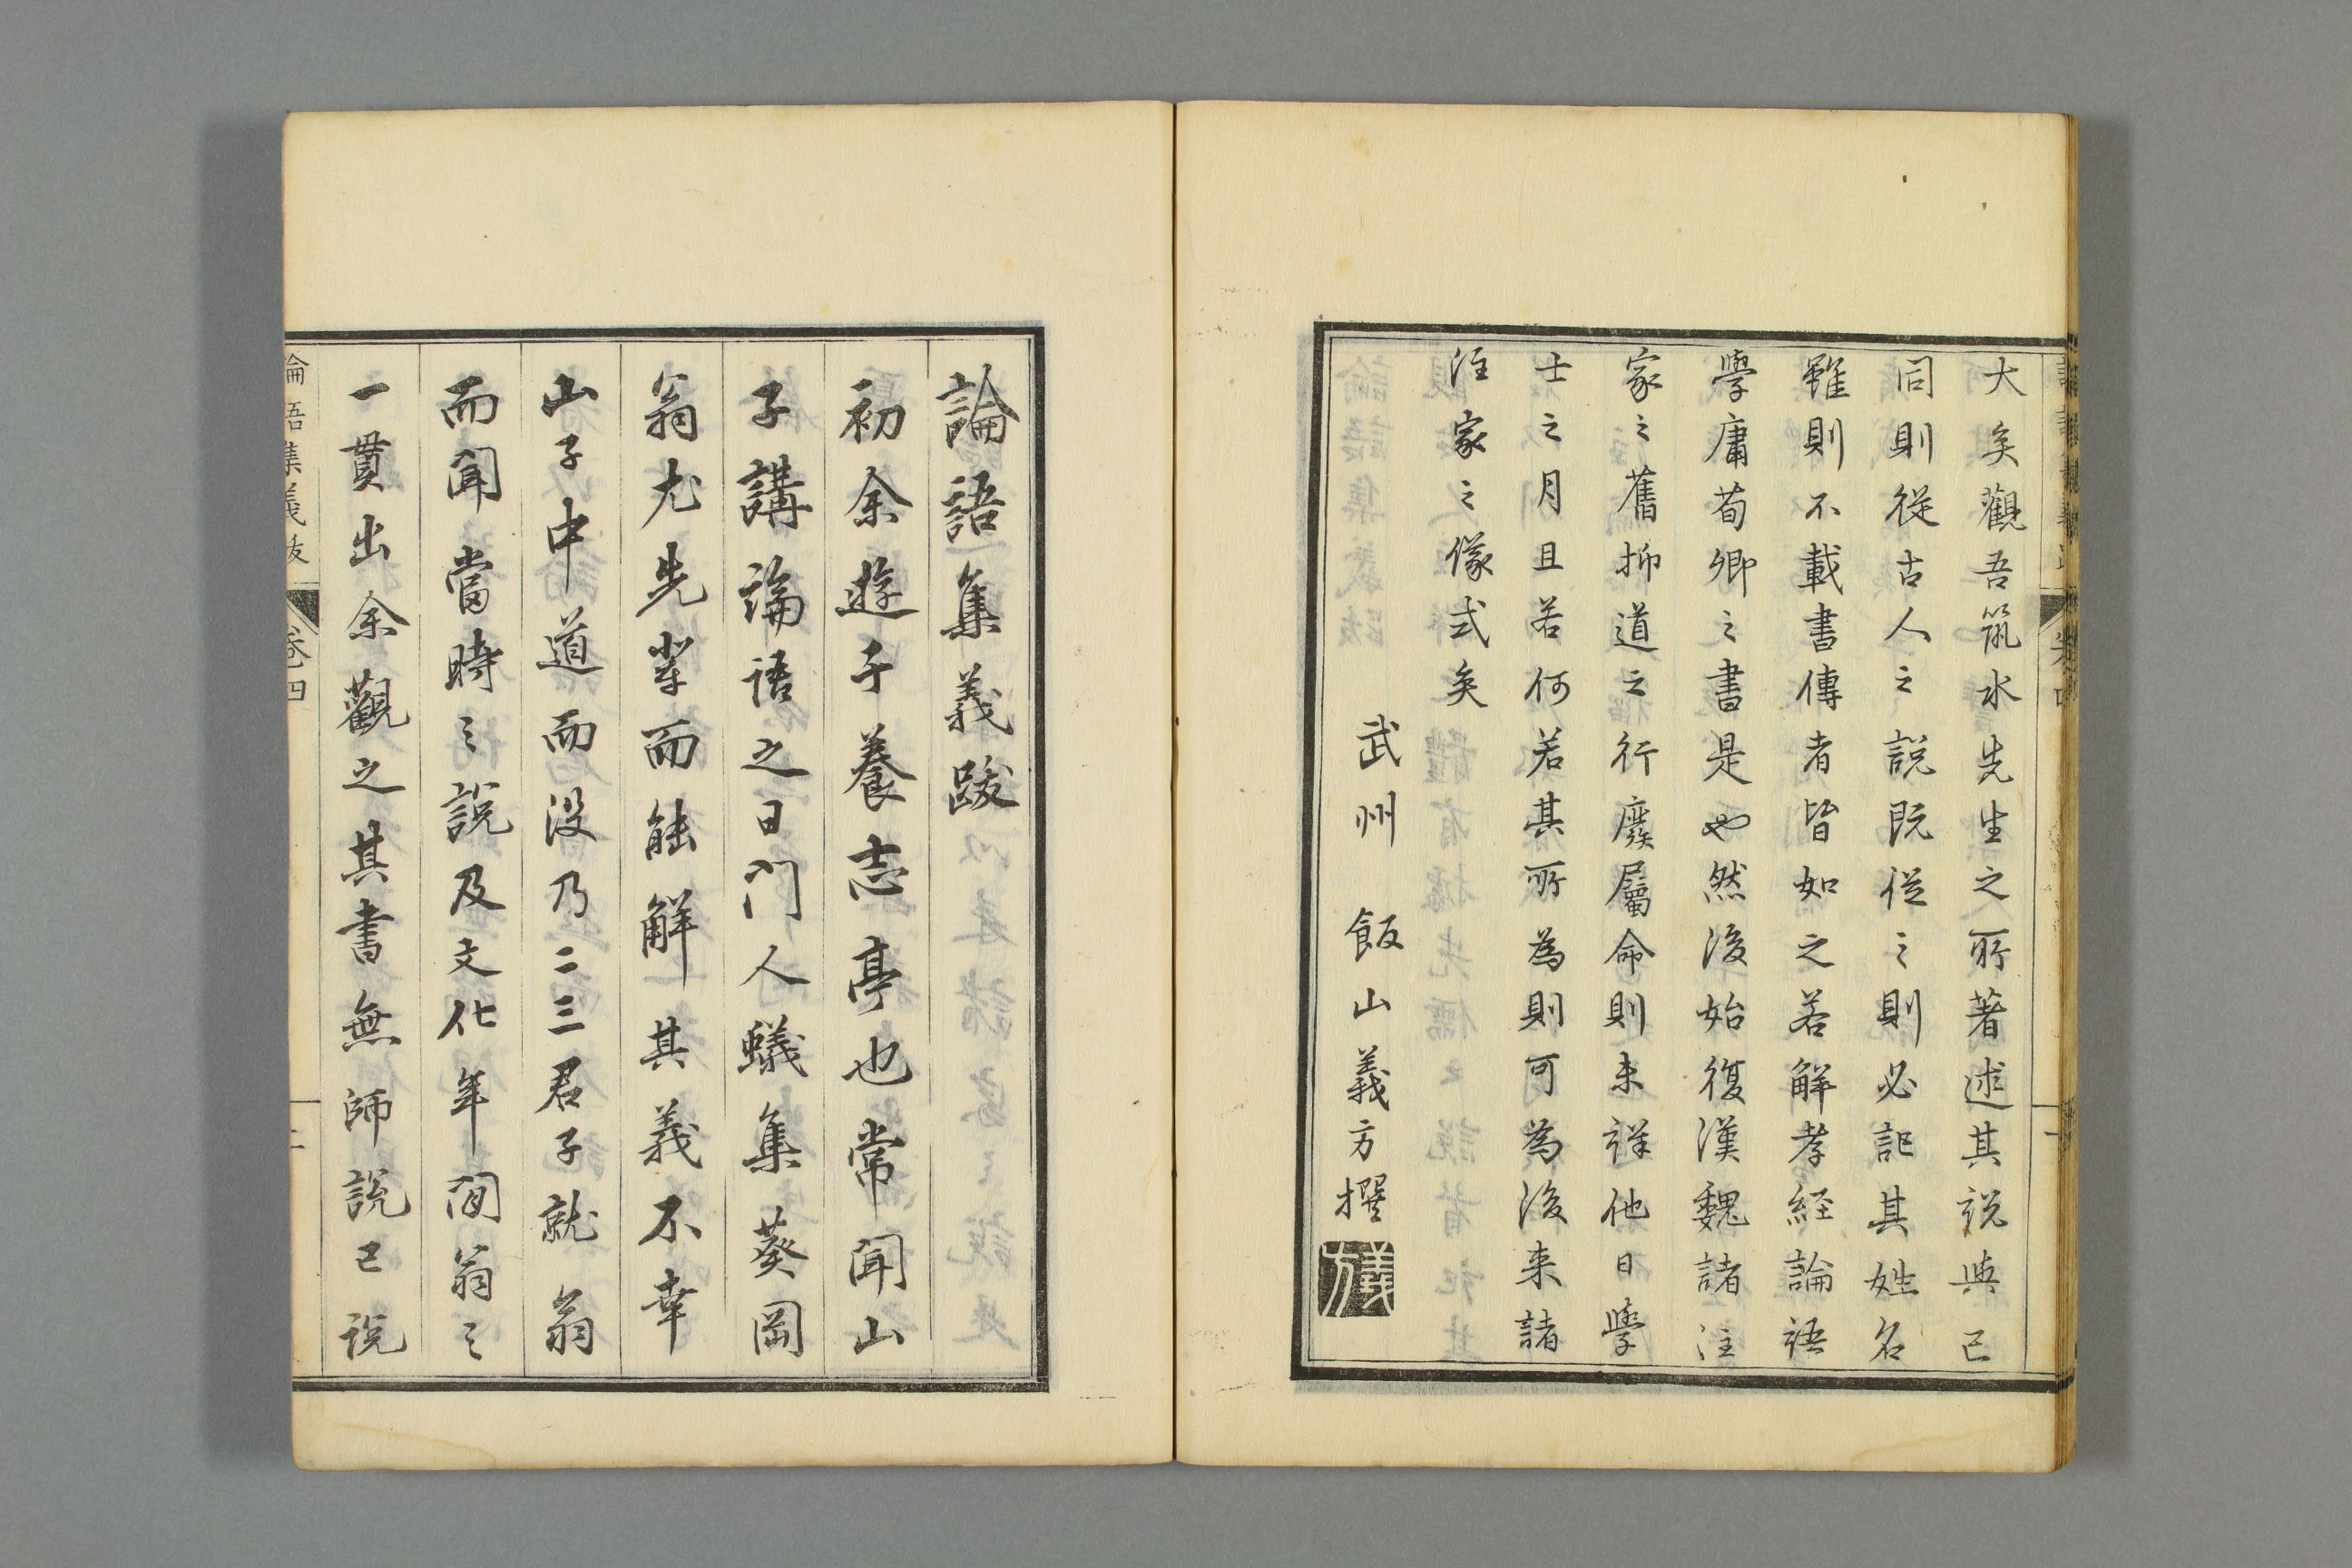 大矣觀吾筑水先生之所著述其説與己
同則從古人之説既從之則必記其姓名
雖則不載書傳者皆如之若解孝経論語
學庸荀卿之書是也然後始復漢魏諸注
家之舊抑道之行廢屬命則未詳他日學
士之月旦若何若其所為則可為後来諸
注家之儀式矣
武州 飯山義方撰
義方
論語集義跋
初余遊于養志亭也常聞山
子講論語之日門人蟻集葵岡
翁尤先輩而能解其義不幸
山子中道而没乃二三君子就翁
而聞當時之説及文化年間翁之
一貫出余觀之其書無師説己説
論語集義跋 卷四 二